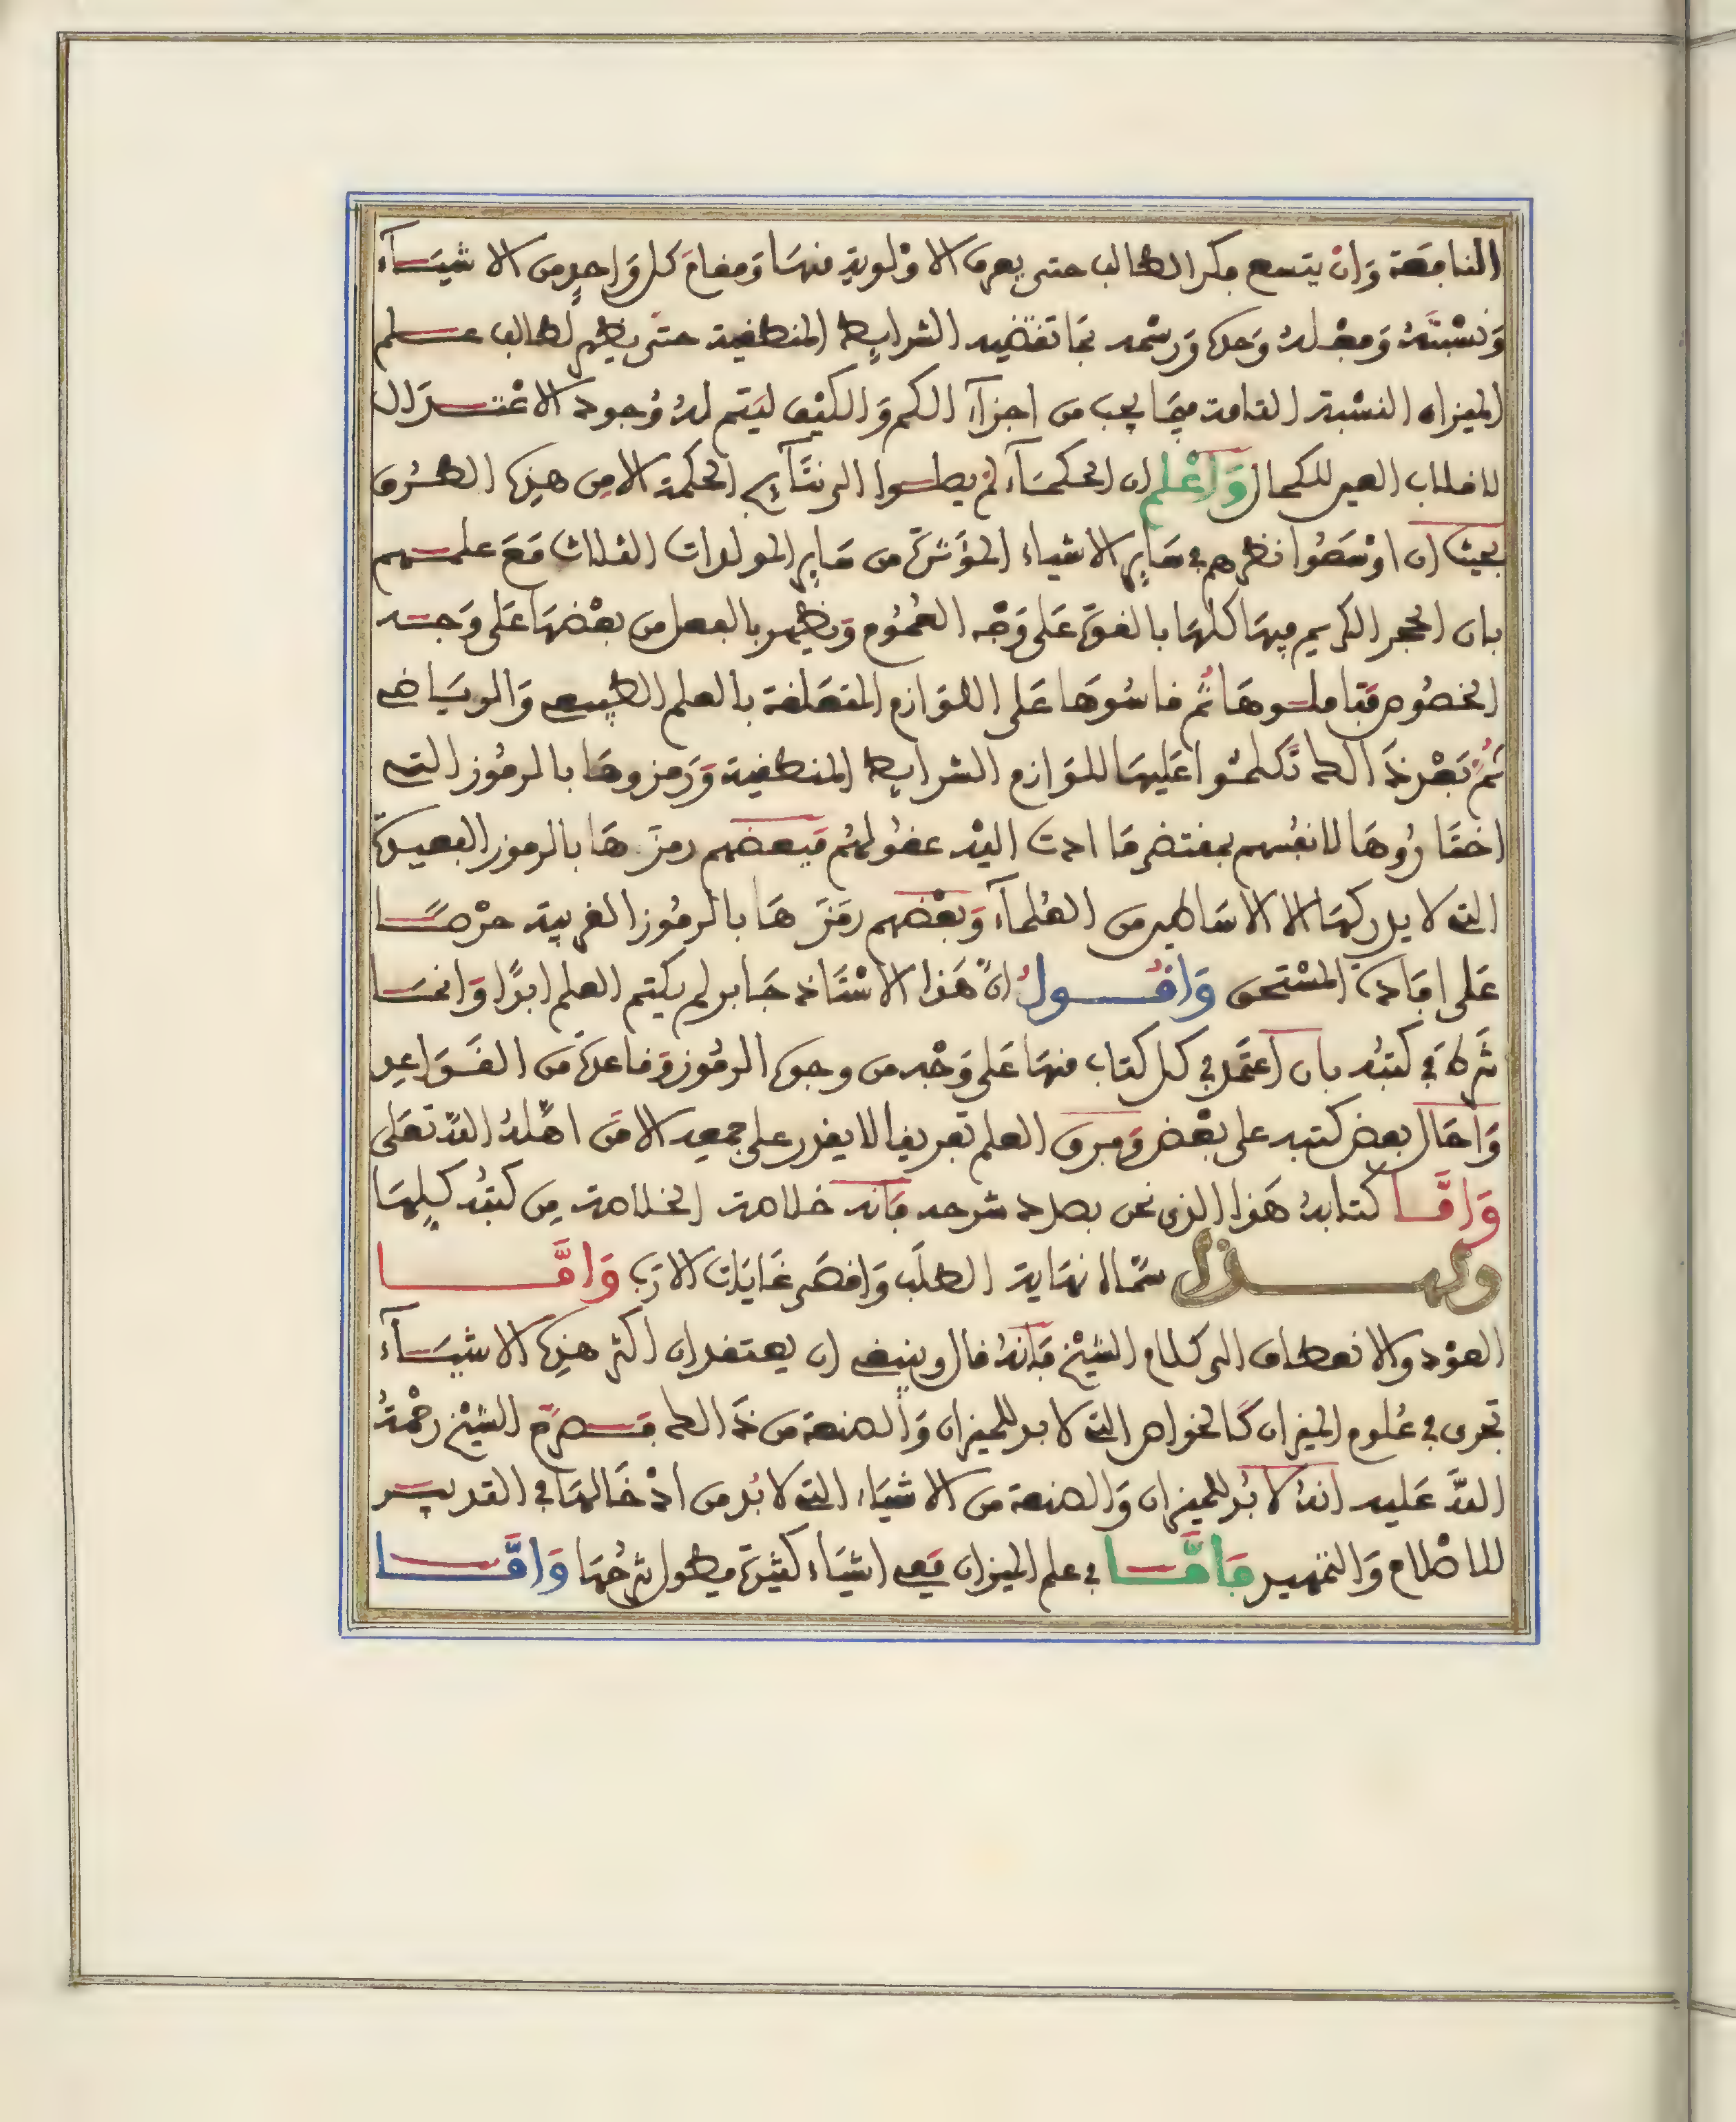 النافعة وَانْ يتسع فكر الطالب حتى يعرف الاوْلوية منهَا وَمقامَ كل وَاحدٍ من الاشيَآء
وَنسْبتَهُ وَفعْلهُ وَحده وَرسْمه بمَا تقتضيه الشرايط المنطقية حتى يظهر لطالب علم
الميزان النسْبة التامة فيمَا يجب من اجزآء الكم وَالكيْف ليَتم لهُ وُجود الاعْتدَال
لانقلاب العين للكمال وَاعْلم ان الحكمَآء لمْ يصلوا الى نتَآيج الحكمة الا من هذِه الطرُق
بحيث ان اوْسَعُوا نظرهم في سَاير الاشياء المؤثرَة من سَاير المولدات الثلاث مَعَ علمهم
بان الحجر الكريم فيهَا كلهَا بالقوَّة عَلى وَجْه العُمُوم وَيظهر بالفعل من بعْضهَا عَلى وَجه
الخصُوص فتاملوهَا ثُم قاسُوهَا عَلى اللوَازم المتعَلقة بالعلم الطبيعي وَالريَاضي
ثُمَّ بَعْد ذَالك تَكلمُوا عَليهَا للوَازم الشرايط المنطقية وَرَمزوهَا بالرمُوز التي
اختَارُوهَا لانفُسهم بمقتضى مَا ادت اليْه عقُولهُم فبَعضهم رمزَهَا بالرموز البعيدة
التي لا يدركهَا الا الاسَاطين من العُلمَآء وَبعْضهم رَمَزَهَا بالرمُوز القريبة حرْصًا
عَلى افَادة المسْتحق وَاقُولُ انَّ هَذا الاسْتَاذ جَابر لم يكتم العلم ابدًا وَانمَا
في كتبُه بان اعتمَد في كل كتاب منهَا عَلى وَجْه من وجوه الرمُوز وَقاعدَة من القَوَاعِد
وَاحَال بعض كتبه على بعْض وَفرق العلم تفريقا لا يقدر على جمعه الا مَن اهَّلهُ اللهُ تعَلى
وَامَّا كتابهُ هَذا الذي نحن بصدد شرحه فَانه خلاصة الخلاصة مِن كتبُه كلِهَا
ولهذا سمَّاه نهَاية الطلَب وَاقصَى غَايَات الارَب وَامَّا
العوْد والانعطاف الى كلام الشيْخ فَانهُ قال وينبغي ان يعتقد ان اكثر هذِه الاشيَآء
تجرى في عُلوم الميزان كَالخواص التي لا بد للميزان وَالصنعة من ذَالك فصرَّح الشيْخ رحْمَةُ
اللهِ عَليه انهُ لا بُد للميزان وَالصنعة من الاشيَاء التي لا بُد من ادْخَالهَا في التدبير
للاصْلاح وَالتمهيد فَامَّا في علم الميزان فهي اشيَاء كثيرَة فيطول شرْحُهَا وَامَّا